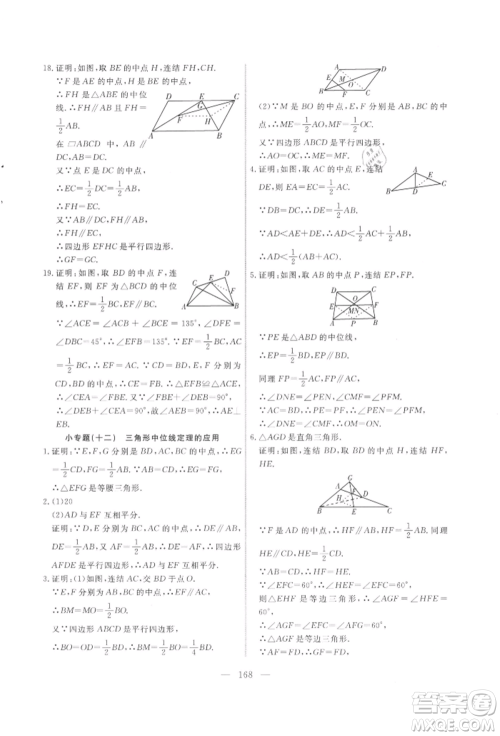 18.证明:如图,取 BE 的中点 H,连结 FH,CH.
∵F 是 AE 的中点,H 是 BE 的中点,
∴FH 是△ABE 的中位
线.∴FH∥AB 且 FH=
1/2AB.
在▱ABCD 中,AB∥
DC,AB=DC.
又∵点 E 是 DC 的中点,
∴EC=1/2DC=1/2AB.
∴FH=EC.
又∵AB∥DC,AB∥FH,∴FH∥EC.
∴四边形 EFHC 是平行四边形.
∴GF=GC.
19.证明:如图,取 BD 的中点 F,连
结 EF,则 EF 为△ABD 的中位
线.∴EF∥AB,EF=1/2AB.
又∵∠ACE=∠BCE=∠ECD=
∠DBC=45°,∴∠EFB=135°=∠ECA.
又∵AB=BC,∴EF=1/2BC.
∴AC=1/2BC,∴EF=AC.
∴△EFB≌△ECA.
∴∠CEA=∠FEB.又∵∠CEA+
∠FEB=∠DEB=90°,∴AE⊥
EB.
小专题(十二) 三角形中位线定理的应用
1.证明:∵E,F,G 分别为 AB,BC,CD 的中点,∴EG=
1/2CD,FG=1/2AB.又∵AB=CD,∴EG=FG.
∴△EFG 是等腰三角形.
2.(1)20
(2)AD 与 EF 互相平分.
证明:∵D,E,F 分别为 BC,AC,AB 的中点,∴DE∥AB,
DE=1/2AB,AF=1/2AB.∴DE=AF.∴四边形
AFDE 是平行四边形.∴AD 与 EF 互相平分.
3.证明:(1)如图,连结 AC,交 BD 于点 O.
∵E,F 分别为 AB,BC 的中点,∴EF∥AC.
∴BM=MO=1/2BO.
又∵四边形 ABCD 是平行四边形,∴BO=1/2BD.
∴BM=1/4BD.
(2)∵M 是 BO 的中点,E,F 分别是 AB,BC 的中点,
∴ME=1/2AO,MF=1/2OC.
又∵四边形 ABCD 是平行四边形,
∴AO=OC.∴ME=MF.
4.证明:如图,取 AC 的中点 E,连结
DE,则 AE=1/2AC.
∵BD=CD,∴DE=1/2AB.
又∵AD<AE+DE,
∴AD<1/2AC+1/2AB.
∴AD<1/2(AB+AC).
5.证明:如图,取 AB 的中点 P,连结 EP,FP.
∵PE 是△ABD 的中位线,
∴EP=1/2BD,EP∥BD.
同理 PF=1/2AC,PF∥AC.
∴∠DNE=∠PEF,∠CMF=∠PFE.
又∵AC=BD,∴PE=PF.
∴∠PEF=∠PFE.
∴∠DNE=∠CMF.
∴∠OMN=∠ONM.∴OM=ON.
6.△AGD 是直角三角形.
证明:如图,连结 BD,取 BD 的中点 H,连结 HF,
HE.
∵F 是 AD 的中点,∴HF∥AB,HF=1/2AB.
同理 HE∥CD,HE=1/2CD.
∵AB=CD,∴HF=HE.
∵∠EFC=60°,∴∠HEF=60°.
∴∠HEF=∠HFE=60°.
则△EHF 是等边三角形.
∴∠AGF=∠HFE=∠EFC=∠AFG=60°.
∴△AGF 是等边三角形.
又∵AF=FD,∴GF=FD.
168